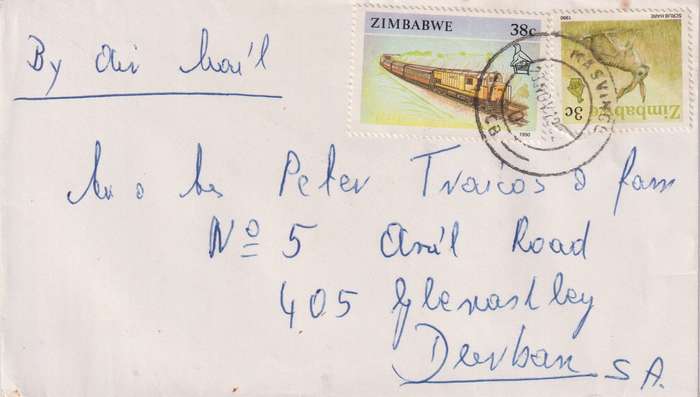 By Air Mail
ZIMBABWE 38c
1990
SCRUB HARE 1990
Zimbabwe 3c
Peter Traicos & fam
No 5 Avil Road
405 Glenashley
Durban S.A.